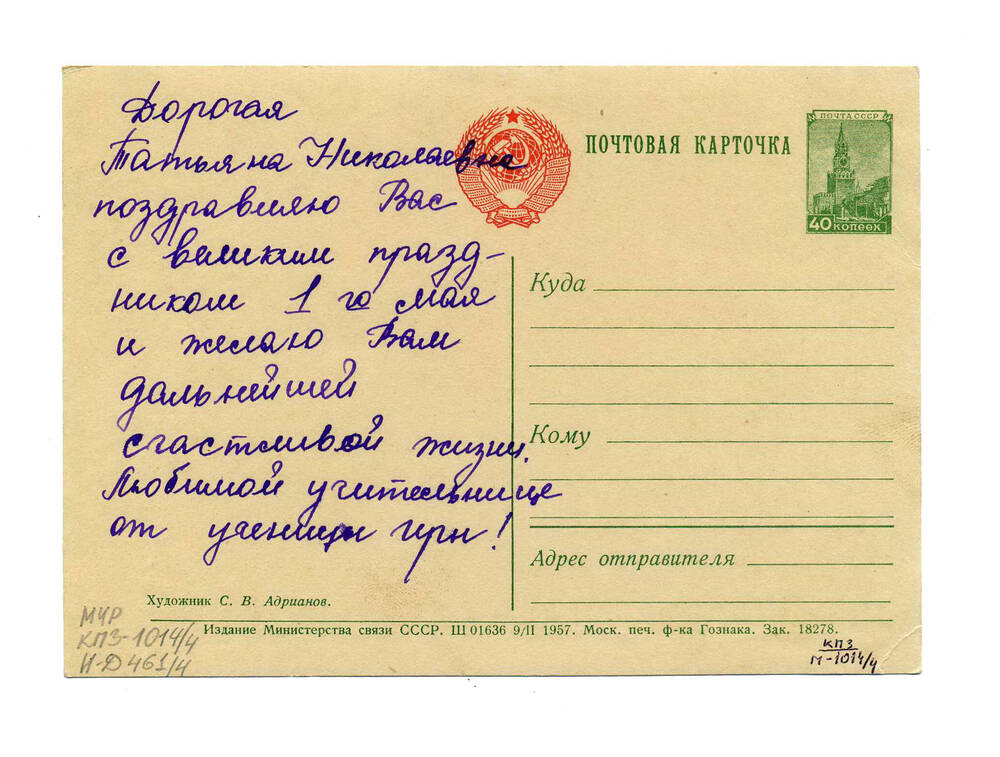 Дорогая
Татьяна Николаевна
поздравляю Вас
с великим празд-
ником 1 го мая
и желаю Вам
дальнейшей
счастливой жизни.
Любимой учительнице
от ученицы !
ПОЧТОВАЯ КАРТОЧКА
ПОЧТА СССР
40 КОПЕЕК
Куда
Кому
Адрес отправителя
Художник С. В. Адрианов.
Издание Министерства связи СССР. Ш 01636 9/II 1957. Моск. печ. ф-ка Гознака. Зак. 18278.
МЧР
КПЗ-1014/4
И-Д 461/4
КПЗ
М-1014/4